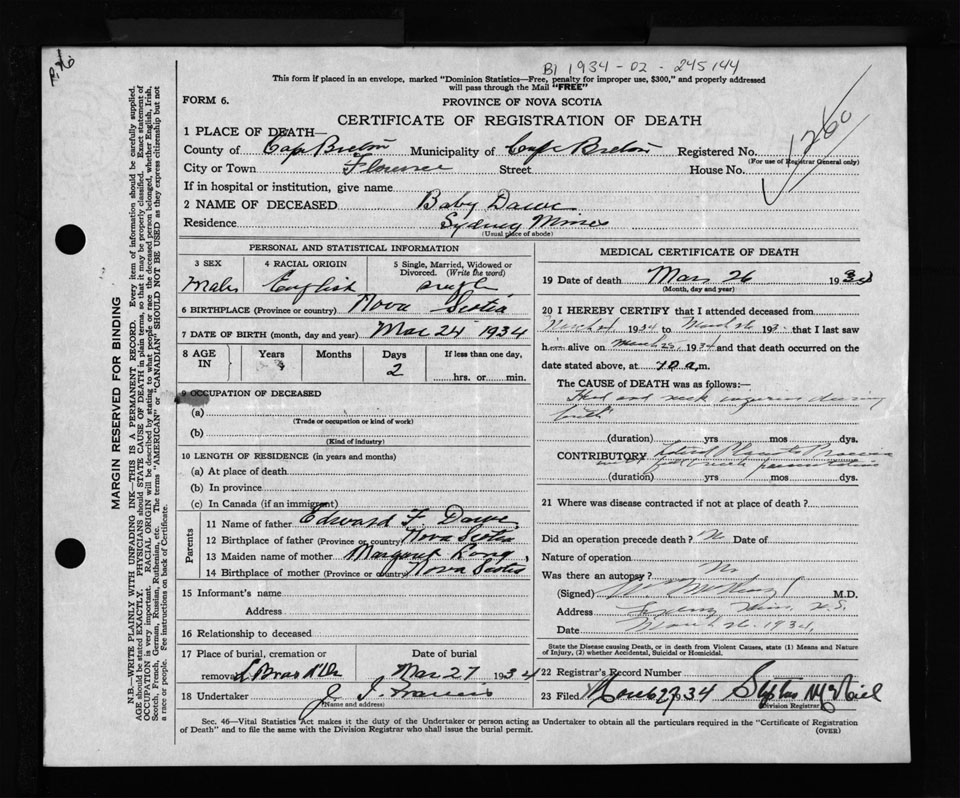 B1 1934-02-245144
This form if placed in an envelope, marked "Dominion Statistics—Free, penalty for improper use, $300," and properly addressed
will pass through the Mail "FREE"
FORM 6.
PROVINCE OF NOVA SCOTIA
CERTIFICATE OF REGISTRATION OF DEATH
1260
1 PLACE OF DEATH—
County of Cape Breton Municipality of Cape Breton Registered No.
(For use of Registrar General only)
City or Town Florence Street House No.
If in hospital or institution, give name
2 NAME OF DECEASED Baby Dawe
Residence Sydney Mines
(Usual place of abode)
PERSONAL AND STATISTICAL INFORMATION
3 SEX 4 RACIAL ORIGIN 5 Single, Married, Widowed or Divorced. (Write the word)
Male English single
6 BIRTHPLACE (Province or country) Nova Scotia
7 DATE OF BIRTH (month, day and year) Mar 24 1934
8 AGE IN Years Months Days If less than one day,
2 hrs. or min.
9 OCCUPATION OF DECEASED
(a)
(Trade or occupation or kind of work)
(b)
(Kind of industry)
10 LENGTH OF RESIDENCE (in years and months)
(a) At place of death
(b) In province
(c) In Canada (if an immigrant)
Parents
11 Name of father Edward F. Dawe
12 Birthplace of father (Province or country) Nova Scotia
13 Maiden name of mother Margaret
14 Birthplace of mother (Province or country) Nova Scotia
15 Informant's name
Address
16 Relationship to deceased
17 Place of burial, cremation or removal Date of burial
L Bras d'Or Mar 27 1934
18 Undertaker J. J. Francis
(Name and address)
MEDICAL CERTIFICATE OF DEATH
19 Date of death Mar 26 1934
(Month, day and year)
20 I HEREBY CERTIFY that I attended deceased from
March 24 1934 to March 26 193 that I last saw
him alive on March 25, 1934 and that death occurred on the
date stated above, at 10 a.m.
The CAUSE of DEATH was as follows:—
Head and neck injuries during
birth
(duration) yrs mos dys.
CONTRIBUTORY
(duration) yrs mos dys.
21 Where was disease contracted if not at place of death?
Did an operation precede death? No Date of
Nature of operation
Was there an autopsy? No
(Signed) M.D.
Address Sydney Mines N.S.
Date March 26 1934,
State the Disease causing Death, or in death from Violent Causes, state (1) Means and Nature
of Injury, (2) whether Accidental, Suicidal or Homicidal.
22 Registrar's Record Number
23 Filed March 27 34
Division Registrar
Sec. 46—Vital Statistics Act makes it the duty of the Undertaker or person acting as Undertaker to obtain all the particulars required in the "Certificate of Registration
of Death" and to file the same with the Division Registrar who shall issue the burial permit.
(OVER)
MARGIN RESERVED FOR BINDING
N.B.—WRITE PLAINLY WITH UNFADING INK—THIS IS A PERMANENT RECORD. Every item of information should be carefully supplied.
AGE should be stated EXACTLY. PHYSICIANS should STATE CAUSE OF DEATH in plain terms, so that it may be properly classified. Exact statement of
OCCUPATION is very important. RACIAL ORIGIN will be described by stating to what people or race the deceased person belonged, whether English, Irish,
Scotch, French, German, Russian, Ruthenian, etc. The terms "AMERICAN" or "CANADIAN" SHOULD NOT BE USED as they express citizenship but not
a race or people. See instructions on back of Certificate.